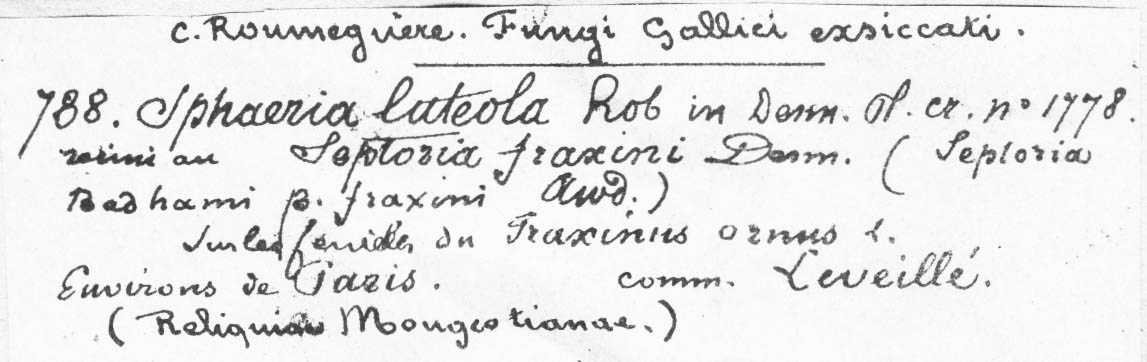 C. Roumeguère. Fungi Gallici exsiccati.
788. Sphaeria luteola Rob in Desm. Pl. cr. n° 1778.
réuni au Septoria fraxini Desm. (Septoria
Badhami β. fraxini Awd.)
Sur les feuilles du Fraxinus ornus L.
Environs de Paris. comm. Leveillé.
(Reliquiae Mougeotianae.)